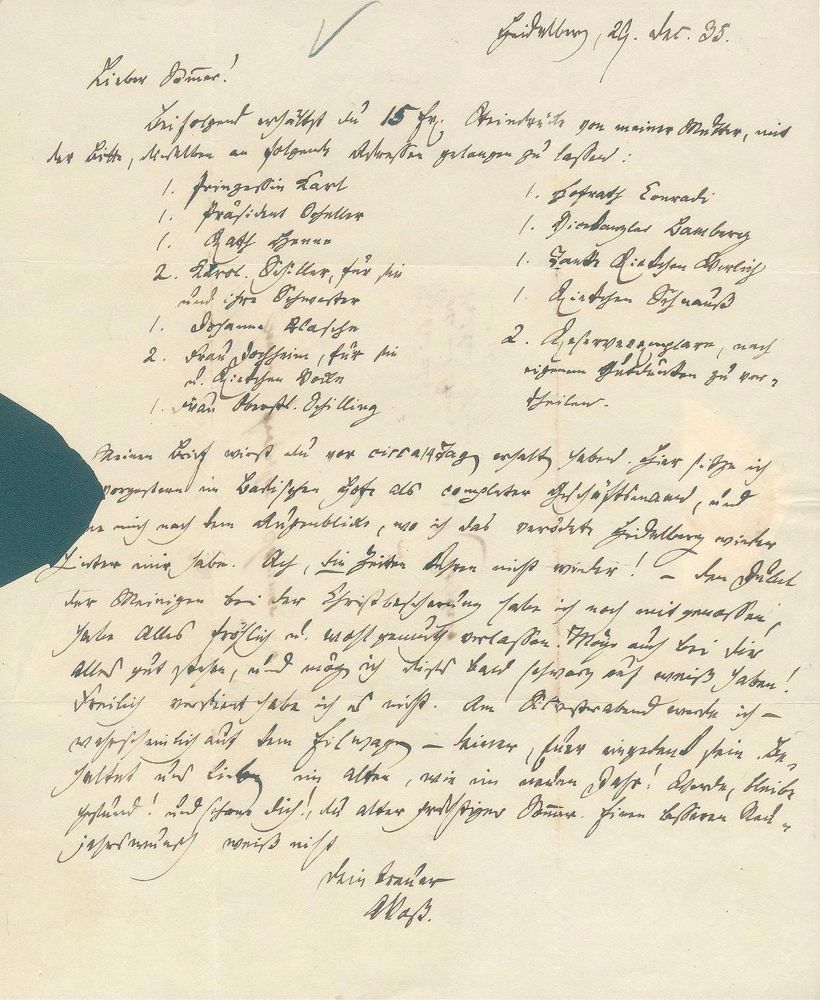 Heidelberg, 29. Dec. 35.
Lieber Sommer!
Beifolgend erhältst du 15 Ex. Steindrücke von meiner Mutter, mit
der Bitte, dieselben an folgende Adressen gelangen zu lassen:
1. Prinzessin Karl
1. Präsident Scheller
1. Rath Henne
2. Karol. Schiller, für sie
und ihre Schwester
1. Johanna
2. Frau Jochheim, für sie
u. Riekchen
1. Frau Oberstl. Schilling
1. Hofrath Conradi
1. Vicekanzler Bamberg
1. Tante Riekchen
1. Riekchen Schnauß
2. Reserveexemplare, nach
eigenem Gutdünken zu ver-
theilen.
Meinen Brief wirst du vor circa 14 Tag erhalt haben. Hier sitze ich
vorgestern im Badischen Hofe als completer Geschäftsmann, und
mich nach dem Augenblicke, wo ich das verödete Heidelberg wieder
hinter mir habe. Ach, die Zeiten kehren nicht wieder! – den Jubel
der Meinigen bei der Christbescherung habe ich noch mit genossen,
habe Alles fröhlich u. wohlgemuth verlassen. Möge auch bei dir
Alles gut stehn, und mög ich dieß bald schwarz auf weiß haben!
Freilich verdient habe ich es nicht. Am Sylvesterabend werde ich –
wahrscheinlich auf dem Eilwagen – deiner, Euer eingedenk sein. Be-
haltet uns lieb im alten, wie im neuen Jahr! Werde, bleibe
gesund! und schone dich!, du alter prächtiger Sommer. Einen besseren Neu-
jahrswunsch weiß nicht
dein treuer